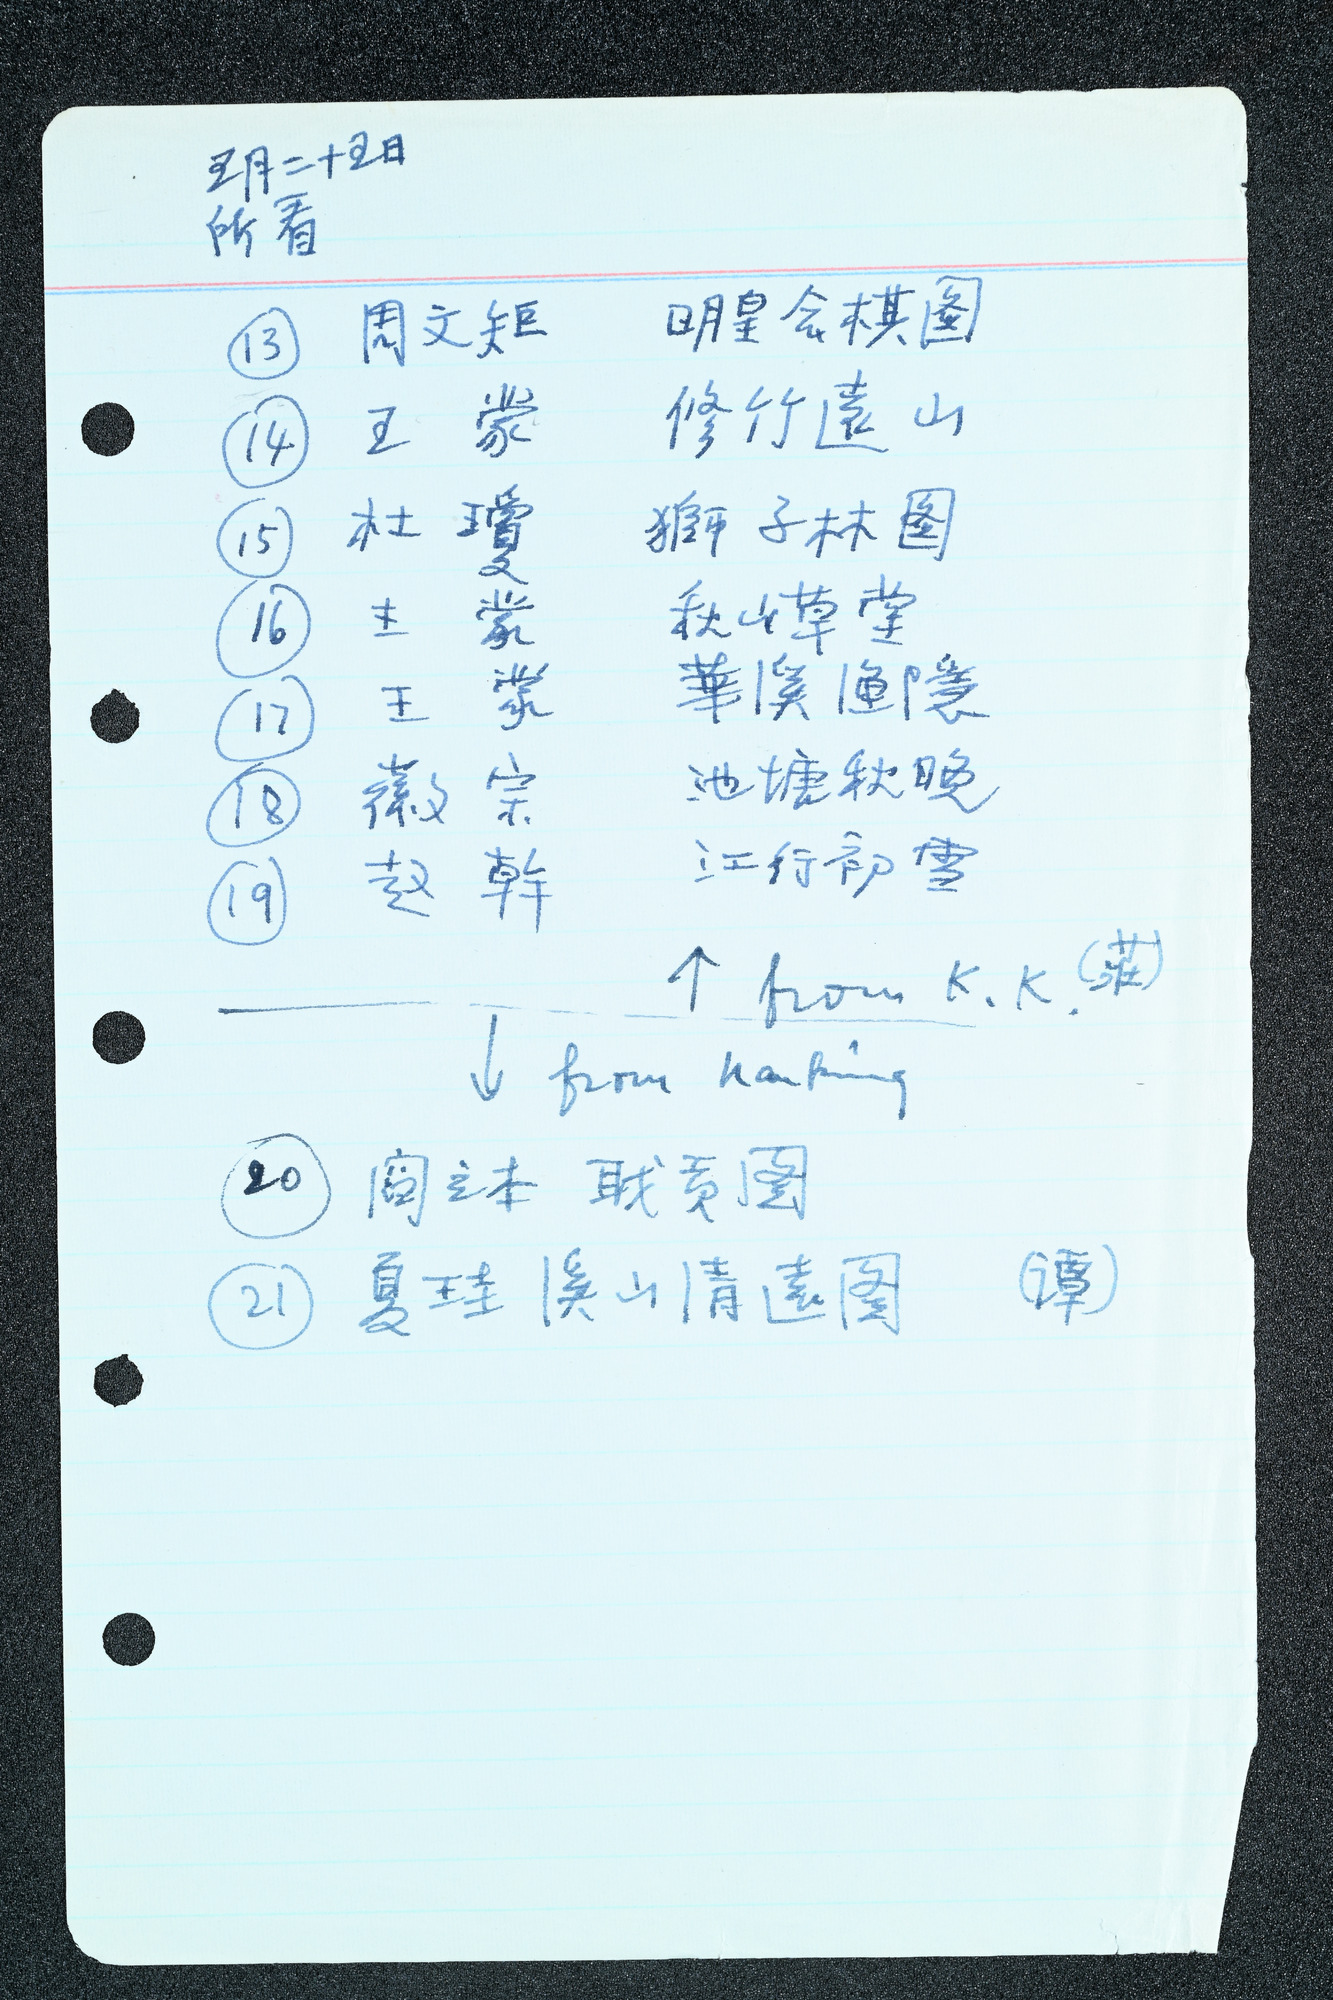 五月二十五日
所看
13 周文矩 明皇会棋图
14 王蒙 修竹遠山
15 杜瓊 獅子林图
16 王蒙 秋山草堂
17 王蒙 華溪漁隱
18 徽宗 池塘秋晚
19 赵幹 江行初雪
↑ from K.K. (莊)
↓ from Nanking
20 阎立本 职贡图
21 夏珪 溪山清遠图 (谭)